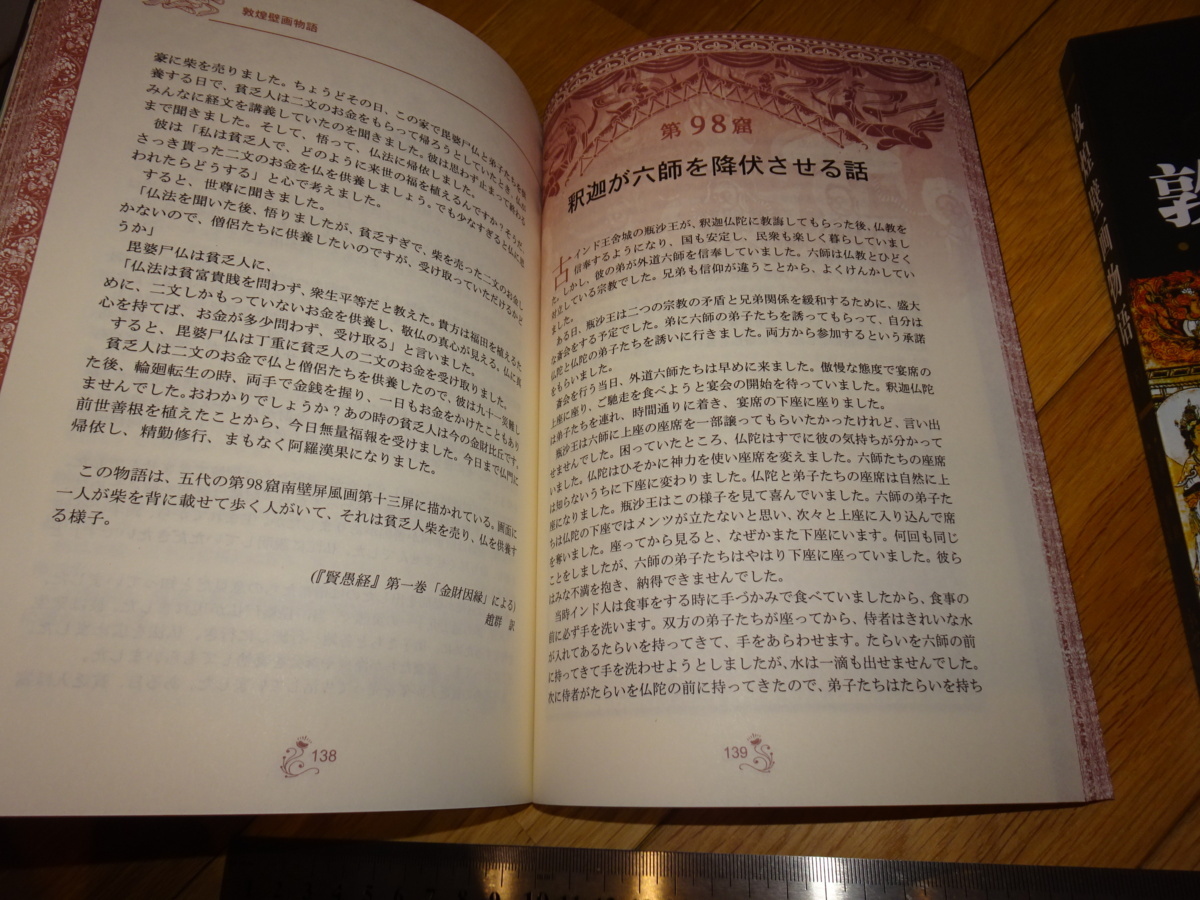 敦煌壁画物語
豪に柴を売りました。ちょうどその日、この家で毘婆尸仏と弟子たちを供
養する日で、貧乏人は二文のお金をもらって帰ろうとしていたとき、仏が
みんなに経文を講義していたのを聞きました。彼は思わず止まって終わる
まで聞きました。そして、悟って、仏法に帰依しました。
彼は「私は貧乏人で、どのように来世の福を植えるんですか?そうだ、
さっき貰った二文のお金を仏を供養しましょう。でも少なすぎると仏に思
われたらどうする」と心で考えました。
すると、世尊に聞きました。
「仏法を聞いた後、悟りましたが、貧乏すぎで、柴を売った二文のお金し
かないので、僧侶たちに供養したいのですが、受け取っていただけるかど
うか」
毘婆尸仏は貧乏人に、
「仏法は貧富貴賎を問わず、衆生平等だと教えた。貴方は福田を植えるた
めに、二文しかもっていないお金を供養し、敬仏の真心が見える。仏に真
心を持てば、お金が多少問わず、受け取る」と言いました。
すると、毘婆尸仏は丁重に貧乏人の二文のお金を受け取りました。
貧乏人は二文のお金で仏と僧侶たちを供養したので、彼は九十一契機し
た後、輪廻転生の時、両手で金銭を握り、一日もお金をかけたこともあり
ませんでした。おわかりでしょうか?あの時の貧乏人は今の金財比丘です。
前世善根を植えたことから、今日無量福報を受けました。今日まで仏門に
帰依し、精勤修行、まもなく阿羅漢果になりました。
この物語は、五代の第98窟南壁屏風画第十三屏に描かれている。画面に
一人が柴を背に載せて歩く人がいて、それは貧乏人柴を売り、仏を供養す
る様子。
(『賢愚経』第一巻「金財因縁」による)
趙群 訳
138
第98窟
釈迦が六師を降伏させる話
古インド王舎城の瓶沙王が、釈迦仏陀に教誨してもらった後、仏教を
信奉するようになり、国も安定し、民衆も楽しく暮らしていまし
た。しかし、彼の弟が外道六師を信奉していました。六師は仏教とひどく
対立している宗教でした。兄弟も信仰が違うことから、よくけんかしてい
ました。
ある日、瓶沙王は二つの宗教の矛盾と兄弟関係を緩和するために、盛大
な斎会をする予定でした。弟に六師の弟子たちを誘ってもらって、自分は
仏陀と仏陀の弟子たちを誘いに行きました。両方から参加するという承諾
をもらいました。
斎会を行う当日、外道六師たちは早めに来ました。傲慢な態度で宴席の
上座に座り、ご馳走を食べようと宴会の開始を待っていました。釈迦仏陀
は弟子たちを連れ、時間通りに着き、宴席の下座に座りました。
瓶沙王は六師に上座の座席を一部譲ってもらいたかったけれど、言い出
せませんでした。困っていたところ、仏陀はすでに彼の気持ちが分かって
いました。仏陀はひそかに神力を使い座席を変えました。六師たちの座席
は知らないうちに下座に変わりました。仏陀と弟子たちの座席は自然に上
座になりました。瓶沙王はこの様子を見て喜んでいました。六師の弟子た
ちは仏陀の下座ではメンツが立たないと思い、次々と上座に入り込んで席
を奪いました。座ってから見ると、なぜかまた下座にいます。何回も同じ
ことをしましたが、六師の弟子たちはやはり下座に座っていました。彼ら
はみな不満を抱き、納得できませんでした。
当時インド人は食事をする時に手づかみで食べていましたから、食事の
前に必ず手を洗います。双方の弟子たちが座ってから、侍者はきれいな水
が入れてあるたらいを持ってきて、手をあらわせます。たらいを六師の前
に持ってきて手を洗わせようとしましたが、水は一滴も出せませんでした。
次に侍者がたらいを仏陀の前に持ってきたので、弟子たちはたらいを持ち
139
敦煌壁画物語
敦